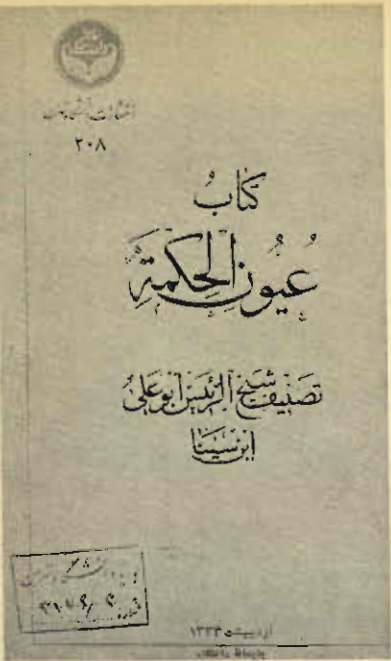 انتشارات دانشگاه تهران
۲۰۸
كتابُ
عُيُون الحِكمَةِ
تصنيف شيخ الرئيس ابو على
ابن سينا
اردیبهشت ۱۳۳۳